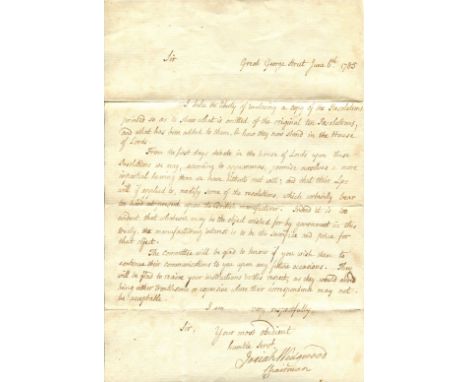 Great George Street June 6th 1785
Sir
I take the liberty of enclosing a copy of the Resolutions
printed so as to shew what is omitted of the original ten Resolutions,
and what has been added to them, & how they now stand in the House
of Lords.
From the first days debate in the house of Lords upon these
Resolutions we may, according to appearances, promise ourselves a more
impartial hearing than we have hitherto met with; and that their Lps
will if applied to, rectify some of the resolutions, which certainly bear
too hard upon the British manufacturers. Indeed it is
evident that Ireland may be the object wished for by government in this
treaty, the manufacturing interest is to be the sacrifice and price for
that object.
The committee will be glad to know if you wish them to
continue their communications to you upon any future occasions. They
will be glad to receive your instructions in this respect, as they would avoid
being either troublesome or expensive where their correspondence may not
be acceptable.
I am very respectfully
Sir, Your most obedient
humble Servt
Josiah Wedgwood
Chairman